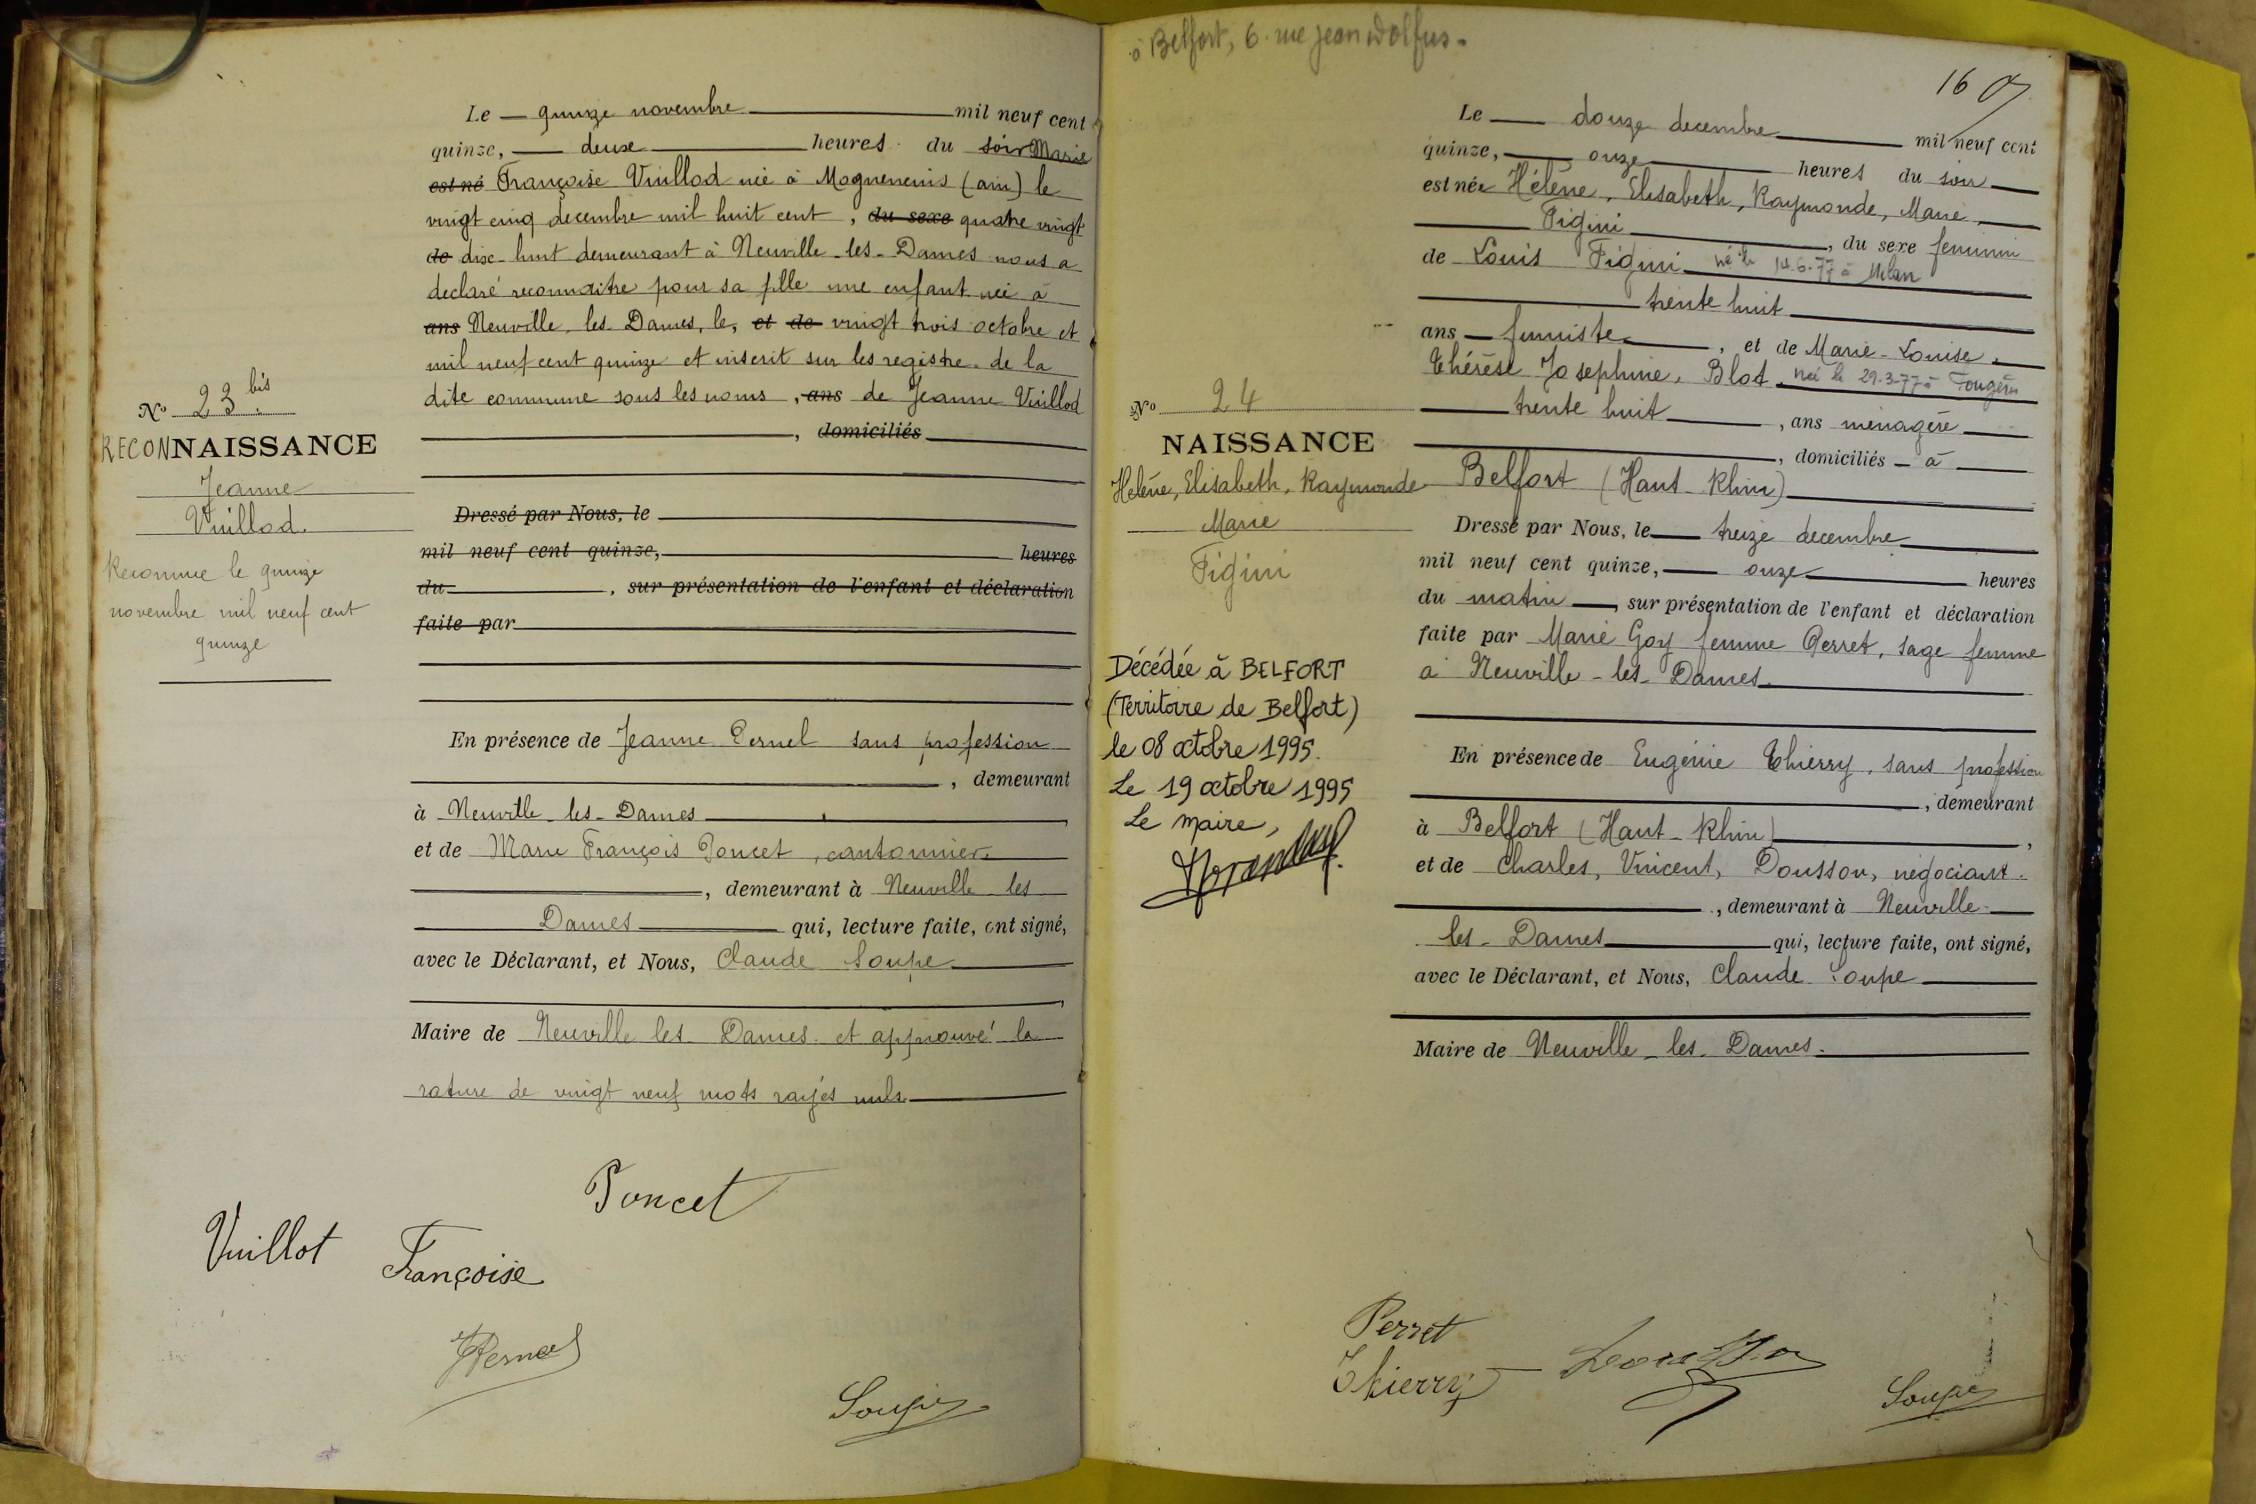 Le — quinze novembre — mil neuf cent
quinze, — deux — heures du soir Marie
est né Françoise Vuillod née à Mogneneins (ain) le
vingt cinq decembre mil huit cent, du sexe quatre vingt
de dix-huit demeurant à Neuville-les-Dames nous a
declaré reconnaitre pour sa fille une enfant née à
ans Neuville les Dames, le, et de vingt trois octobre et
mil neuf cent quinze et inscrit sur les registre de la
dite commune sous les noms, ans de Jeanne Vuillod
, domiciliés
No 23 bis
RECONNAISSANCE
Jeanne
Vuillod.
Reconnue le quinze
novembre mil neuf cent
quinze
Dressé par Nous, le
mil neuf cent quinze, heures
du , sur présentation de l'enfant et déclaration
faite par
En présence de Jeanne Pernel sans profession
, demeurant
à Neuville-les-Dames ,
et de Marie François Poncet, cantonnier
, demeurant à Neuville les
Dames qui, lecture faite, ont signé,
avec le Déclarant, et Nous, Claude Soupe
Maire de Neuville les Dames et approuvé la
rature de vingt neuf mots rayés nuls
Poncet
Vuillot Françoise
JPernel
Soupe
à Belfort, 6. rue Jean Dolfus.
16
Le — douze decembre — mil neuf cent
quinze, — onze — heures du soir
est née Hélène, Elisabeth, Raymonde, Marie
Figini , du sexe feminin
de Louis Figini né le 14.6.77 à Milan
trente huit
ans — fumiste , et de Marie-Louise,
Thérèse Josephine, Blot née le 29.3.77 à Fougères
trente huit , ans menagère
, domiciliés — à
Belfort (Haut-Rhin)
No 24
NAISSANCE
Helène, Elisabeth, Raymonde
Marie
Figini
Décédée à BELFORT
(Territoire de Belfort)
le 08 octobre 1995.
Le 19 octobre 1995
Le Maire,
Dressé par Nous, le — treize decembre
mil neuf cent quinze, — onze — heures
du matin —, sur présentation de l'enfant et déclaration
faite par Marie Goy femme Perret, sage femme
à Neuville-les-Dames
En présence de Eugénie Thierry, sans profession
, demeurant
à Belfort (Haut-Rhin) ,
et de Charles, Vincent, Doussou, négociant.
, demeurant à Neuville-
les-Dames qui, lecture faite, ont signé,
avec le Déclarant, et Nous, Claude Soupe
Maire de Neuville-les-Dames.
Perret
Thierry
Soupe